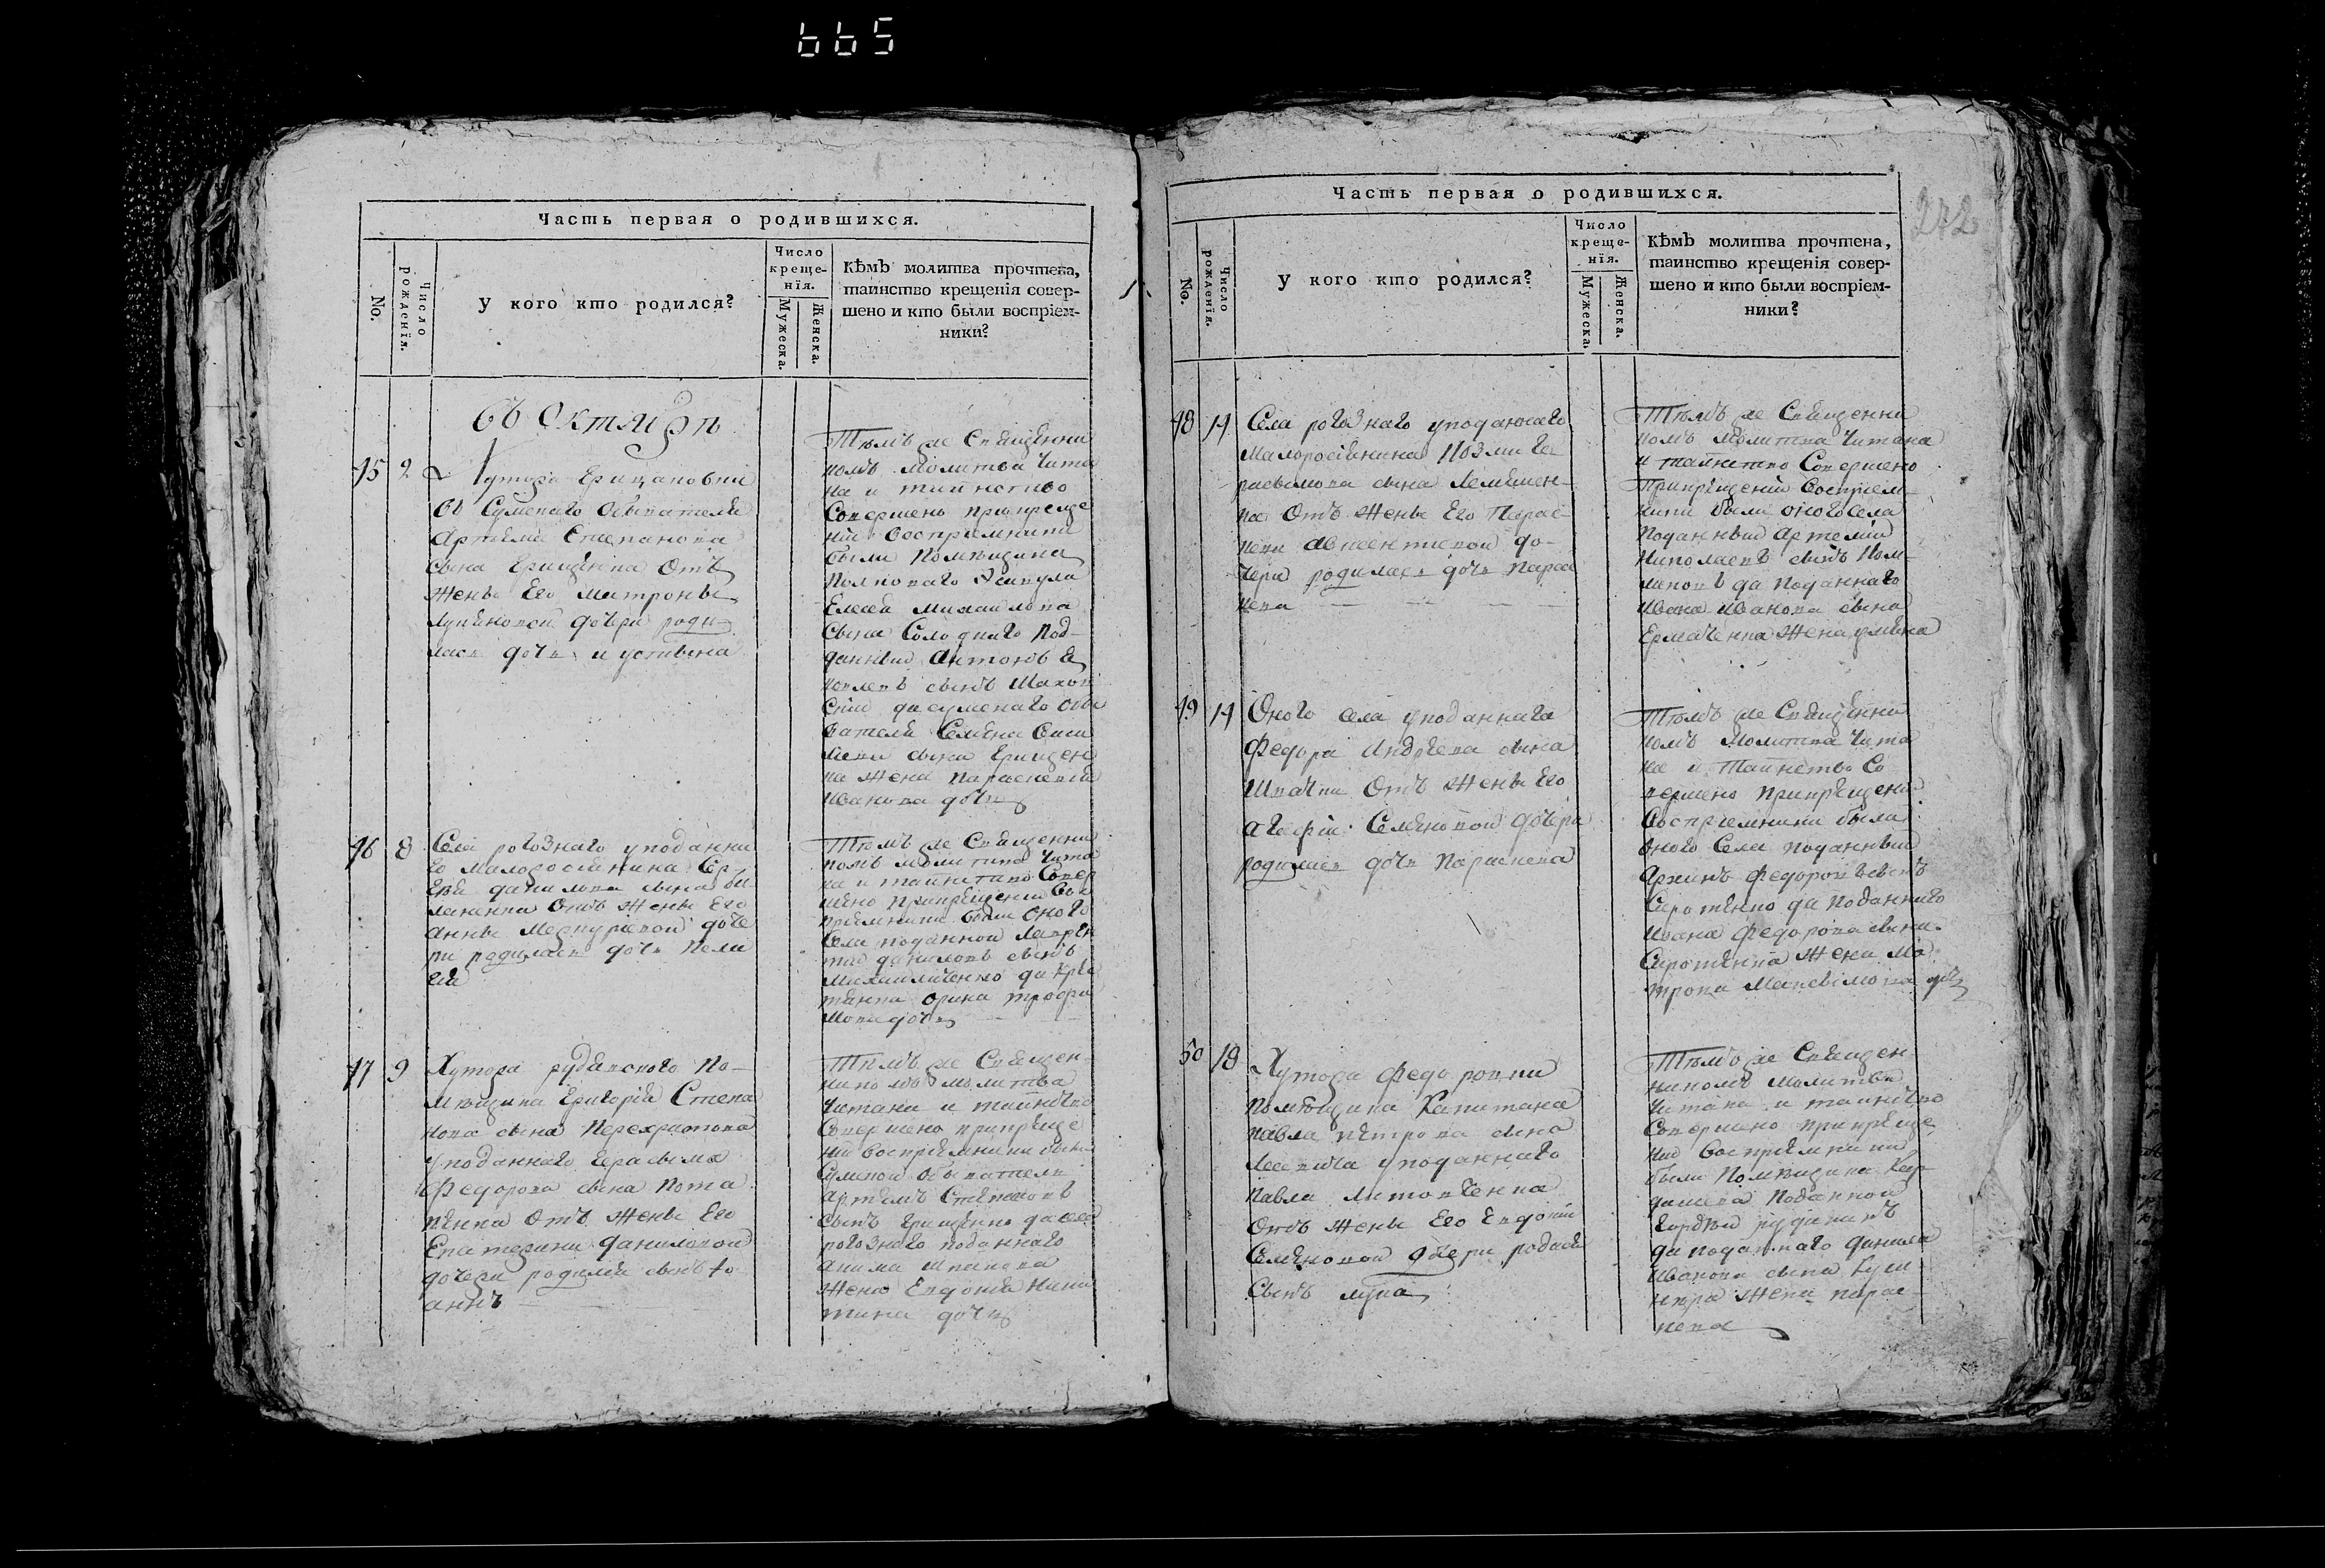 665
Часть первая о родившихся.
No.
Число рожденія.
У кого кто родился?
Число
креще-
нія.
Мужеска.
Женска.
Кѣмъ молитва прочтена,
таинство крещенія совер-
шено и кто были воспріем-
ники?
въ Октяврѣ
45
2
Хутора
въ Сумскаго Обывателя
Артема Степанова
сына Грищенка Отъ
жены Его Матроны
дочери роди-
лась дочь Иустина
Тѣмъ же Священни
комъ Молитва Чита
на и таинство
Совершено прикреще
ніи воспріемники
были Помѣщика
Елисея Михаилова
сына под-
данный Антонъ
сынъ
да сумскаго Обы
вателя Семена
сына Грищен
ка жена Параскевія
Иванова дочь
46
8
Села рогознаго у поданна
го Малоросіянина Сер
гѣя данилова сына
Отъ жены Его
Анны Меркуріевой доче
ри родилась дочь Пела
гія
Тѣмъ же Священни
комъ молитва Чита
на и таинство Совер
шено прикрещеніи Вос
пріемники были Оного
Села поданной Лаврен
тій даниловъ сынъ
да
Орина Трофи
мова дочь
47
9
Хутора рудавского По-
мѣщика Григорія Степа
нова сына Перехристова
у поданнаго Герасима
Федорова сына Пота
пенка Отъ жены Его
Екатерины даниловой
дочери родился сынъ Іо
аннъ
Тѣмъ же Священ
никомъ молитва
Читана и таинство
Совершено прикреще
ніи Воспріемники были
Сумской Обыватель
Артемъ Степановъ
сынъ Грищенко да села
рогознаго поданнаго
Жена Евдокія Ники
тина дочь
Часть первая о родившихся.
272
No.
Число рожденія.
У кого кто родился?
Число
креще-
нія.
Мужеска.
Женска.
Кѣмъ молитва прочтена,
таинство крещенія совер-
шено и кто были воспріем-
ники?
48
14
Села рогознаго у поданнаго
Малоросіянина Козми Ге
расимова сына Лемешен-
ка Отъ Жены Его Парас-
кеви Авксентіевой до-
чери родилась дочь Парас
кева
Тѣмъ же Священни
комъ молитва Читана
и таинство Совершено
прикрещеніи Воспріем-
ники были оного Села
поданный Артемій
Николаевъ сынъ
да поданнаго
Ивана Иванова сына
Ермаченка жена
49
14
Оного села у поданнаго
Федора Андреева сына
Шпачка Отъ Жены Его
Агафіи Семеновой дочери
родилась дочь Параскева
Тѣмъ же Священни
комъ Молитва Чита
на и Таинство Со
вершено прикрещеніи
Воспріемники были
оного Села поданный
Федоровъ сынъ
Сиротенко да поданнаго
Ивана Федорова сына
Сиротенка Жена Ма
трона Максимова дочь
50
18
Хутора Федоровки
Помѣщика Капитана
Павла Петрова сына
у поданнаго
Павла Литовченка
Отъ жены Его Евдокіи
Семеновой дочери родился
Сынъ Лука
Тѣмъ же Священ
никомъ Молитва
Читана и таинство
Совершено прикреще
ніи Воспріемники
были Помѣщика Кар
поданной
да поданнаго данила
Иванова сына Куш
нера жена парас
кева